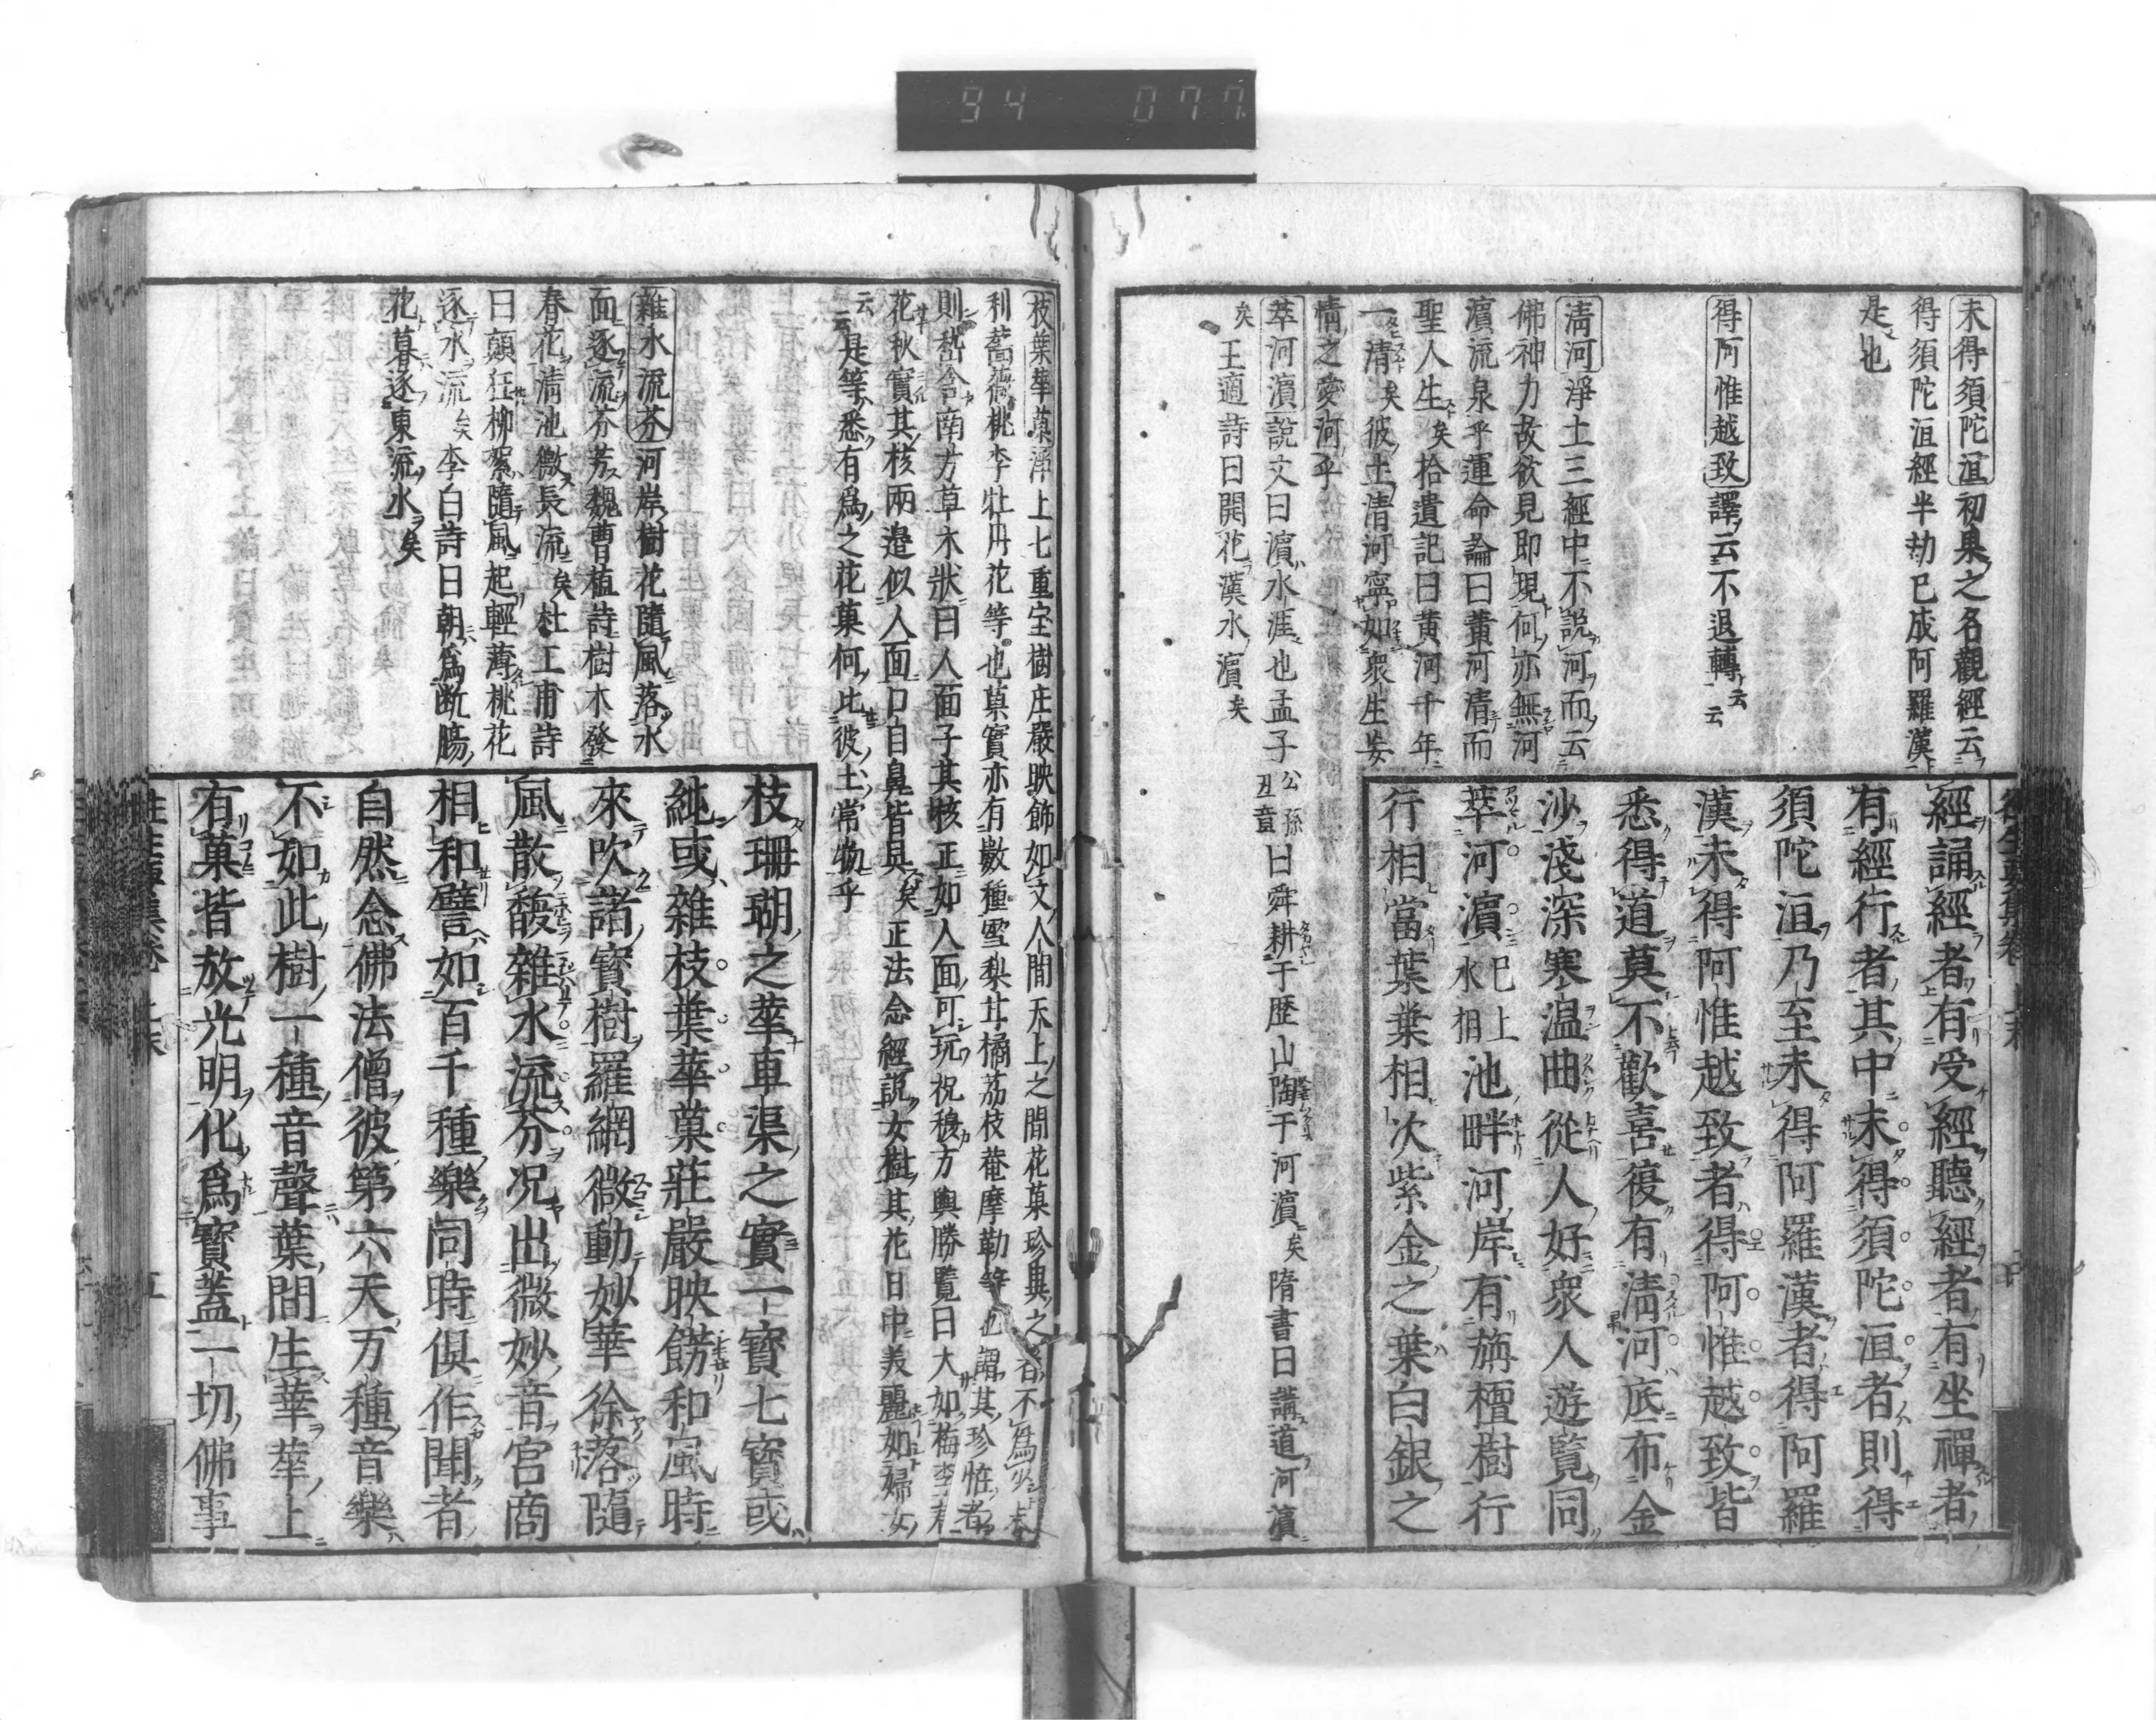 94 077
未得須陀洹初果之名觀經云
得須陀洹經半劫已成阿羅漢
是也
得阿惟越致譯云不退轉云云
淸河淨土三經中不說河而云
佛神力故欲見即現何亦無河
濵流泉乎運命論曰黄河清而
聖人生矣拾遺記曰黄河千年
一清矣彼土清河寧如衆生妄
情之愛河乎
萃河濵說文曰濵水涯也孟子公孫丑章曰舜耕于歴山陶于河濵矣隋書曰講道河濵
矣王適詩曰開花漢水濵矣
經誦經者有受經聽經者有坐禪者
有經行者其中未得須陀洹者則得
須陀洹乃至未得阿羅漢者得阿羅
漢未得阿惟越致者得阿惟越致皆
悉得道莫不歡喜復有清河底布金
沙淺深寒温曲從人好衆人遊覽同
萃河濵已上水相池畔河岸有栴檀樹行
行相當葉葉相次紫金之葉白銀之
枝葉華菓淨土七重宝樹庄嚴映飾如文人間天上之間花菓珍異之名不爲少春
利薔薇桃李牡丹花等也菓實亦有數種雪梨甘橘茘枝菴摩勒等也謂其珍恠者
則嵆含南方草木狀曰人面子其核正如人面可玩祝穆方輿勝覽曰大如梅李春
花秋實其核兩邉似人面口目鼻皆具矣正法念經說女樹其花日中美麗如婦女
云云是等悉有爲之花菓何比彼土常物乎
雜水流芬河岸樹花隨風落水
而逐流芬芳魏曹植詩樹木發
春花清池激長流矣杜工甫詩
曰顛狂柳絮隨風起輕薄桃花
逐水流矣李白詩曰朝爲断膓
花暮逐東流水矣
枝珊瑚之華車渠之實一寳七寳或
純或雜枝葉華菓莊嚴映餝和風時
來吹諸寳樹羅網微動妙華徐落隨
風散馥雜水流芬况出微妙音宮商
相和譬如百千種樂同時俱作聞者
自然念佛法僧彼第六天万種音樂
不如此樹一種音聲葉間生華華上
有菓皆放光明化爲寳蓋一切佛事